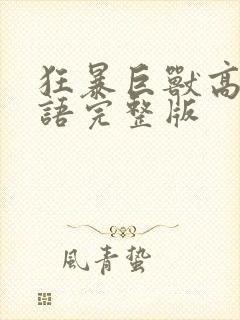 狂暴巨獸高
語完整版
風青蟄